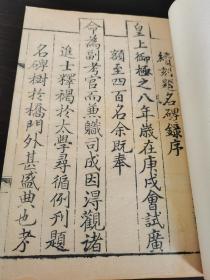 續刻題名碑錄序
皇上御極之八年歲在庚戌會試廣
額至四百名余既奉
命為副考官而兼職司成因得觀諸
進士釋褐於太學尋循例刊題
名碑樹於橋門外甚盛典也考